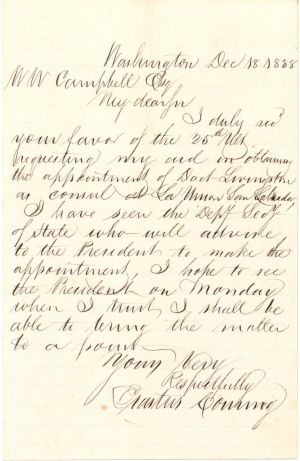 Washington Dec 18 1858
W W Campbell Esq
My dear Sir
I duly recd
your favor of the 25th Ult
requesting my aid in obtaining
the appointment of Doct Livingston
as consul at La Union San Salvador
I have seen the Dept Secy
of State who will advise
to the President to make the
appointment, I hope to see
the President on Monday
when I trust I shall be
able to bring the matter
to a point
Yours Very
Respectfully
Erastus Corning